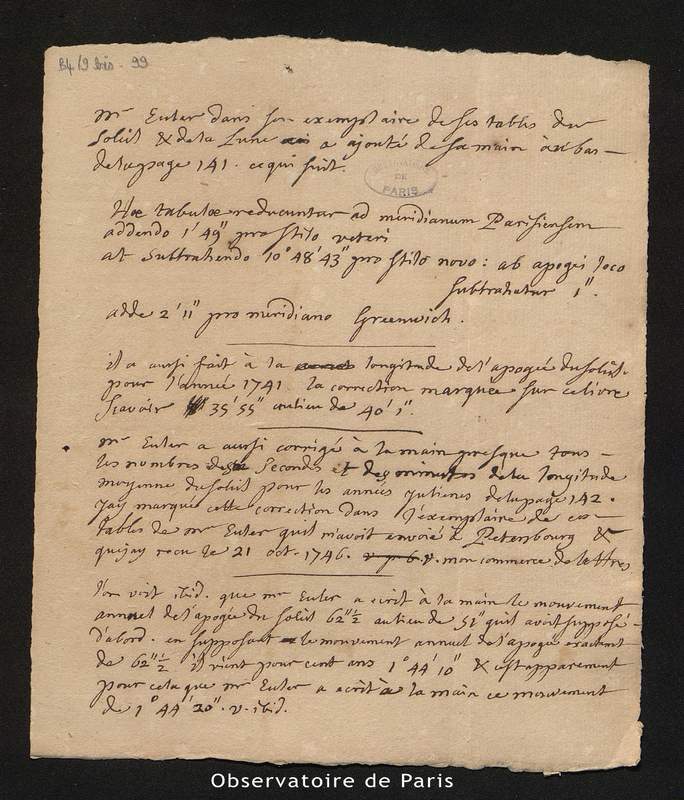 B4/9 bis - 99
mr Euler dans son exemplaire de ses tables du
Soleil & de la Lune a ajouté de sa main au bas
de la page 141. ce qui suit.
OBSERVATOIRE
DE
PARIS
Hæ tabulæ reducuntur ad meridianum Parisiensem
addendo 1' 49" pro stilo veteri
at subtrahendo 10° 48' 43" pro stilo novo : ab apogei loco
subtrahatur 1".
adde 2' 11" pro meridiano Greenwich.
il a aussi fait à la longitude de l'apogée du soleil
pour l'année 1741. la correction marquée sur ce livre
scavoir 35' 55" au lieu de 40' 1".
mr Euler a aussi corrigé à la main presque tous
les nombres des secondes et des minutes de la longitude
moyenne du soleil pour les années juliennes de la page 142.
jay marqué cette correction dans l'exemplaire de ces
tables de mr Euler quil m'avoit envoié à Petersbourg &
que jay recu le 21 oct. 1746. v. mon commerce de lettres
l'on voit ibid. que mr Euler a ecrit à la main le mouvement
annuel de l'apogée du soleil 62" ½ au lieu de 51" quil avoit supposé
d'abord. en supposant le mouvement annuel de l'apogée exactement
de 62" ½ il vient pour cent ans 1° 44' 10" & c'est apparement
pour cela que mr Euler a ecrit à la main ce mouvement
de 1° 44' 20". v. ibid.
Observatoire de Paris